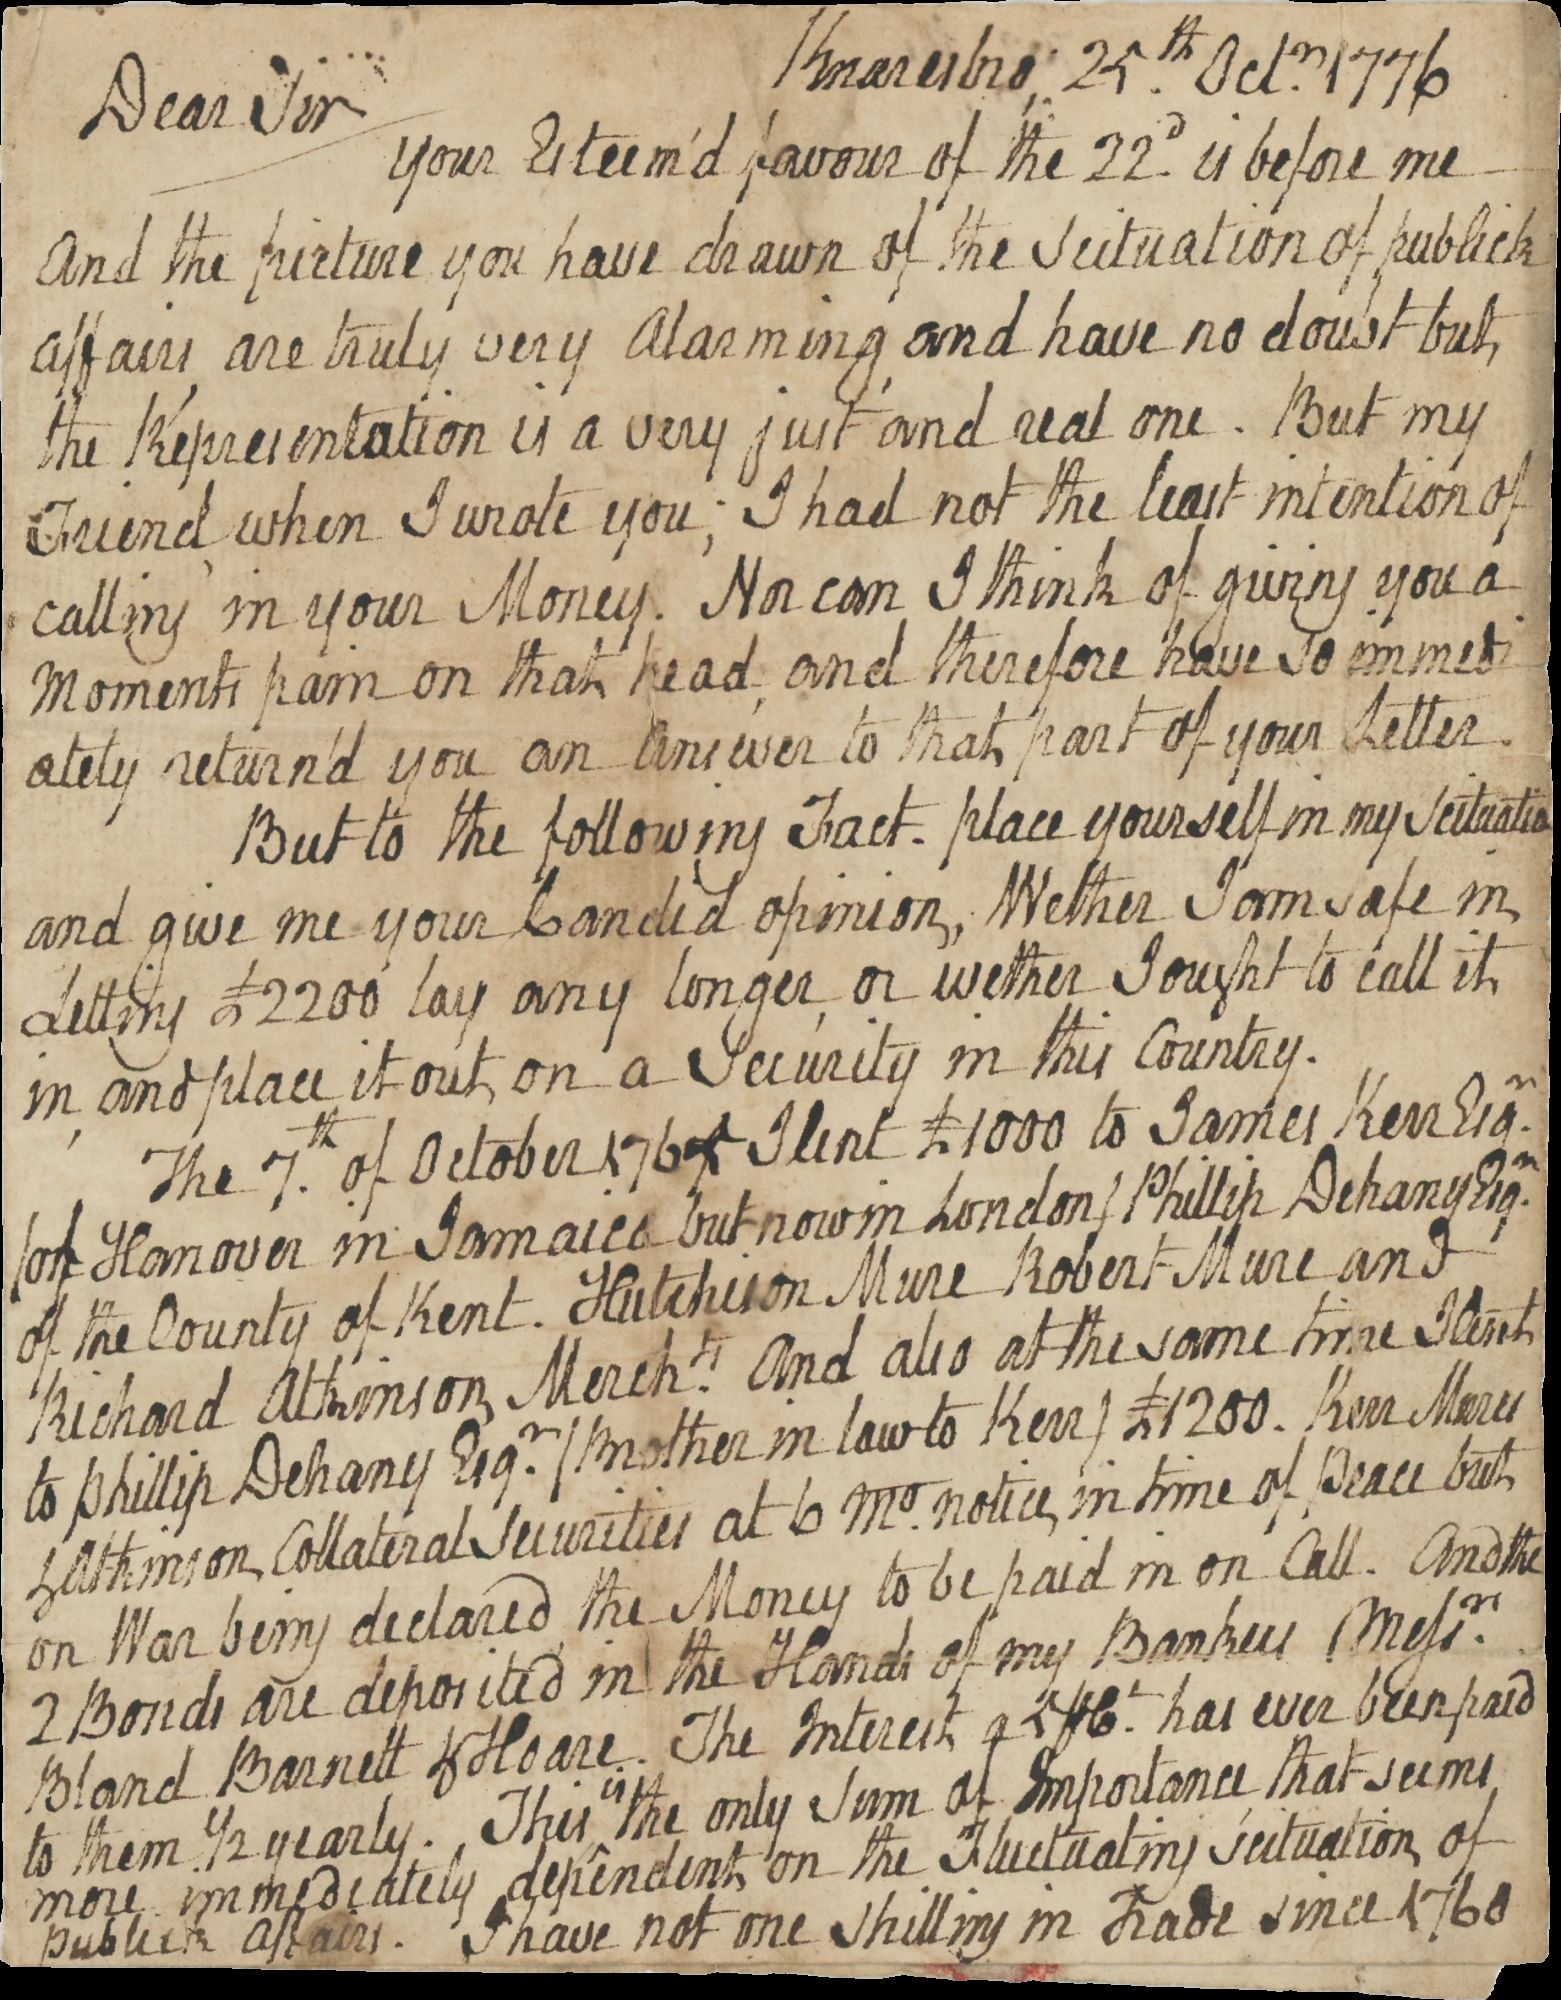 Knaresbro, 25th Octr 1776
Dear Sir
your Esteem'd favour of the 22d is before me
And the picture you have drawn of the scituation of publick
affairs are truly very Alarming and have no doubt but
the Representation is a very just and real one. But my
Friend, when I wrote you; I had not the least intention of
calling in your Money. Nor can I think of giving you a
Moments pain on that head, and therefore have so immedi
ately return'd you an Answer to that part of your Letter.
But to the following Fact. place yourself in my Scituatio
and give me your Candid opinion, Wether I am safe in
Letting £2200 lay any longer, or wether I ought to call it
in, and place it out on a Security in this Country.
The 7th of October 176 I lent £1000 to James Kerr Esqr.
(of Hanover in Jamaica but now in London) Phillip Dehany Esqr.
of the County of Kent. Hutchison Mure Robert Mure and
Richard Atkinson Mercht. And also at the same time I lent
to phillip Dehany Esqr. (Brother in law to Kerr) £1200. Kerr Mures
& Atkinson, Collateral Securities at 6 Mo. notice, in time of Peace but
on War being declared, the Money to be paid in on Call. And the
2 Bonds are deposited in the Hands of my Bankers (Messrs.
Bland Barnett & Hoare. The Interest 5 has ever been paid
to them 1/2 yearly. This is the only Sum of Importance that seems
more immediately dependent on the Fluctuating Scituation of
publick Affairs. I have not one shilling in Trade since 1760